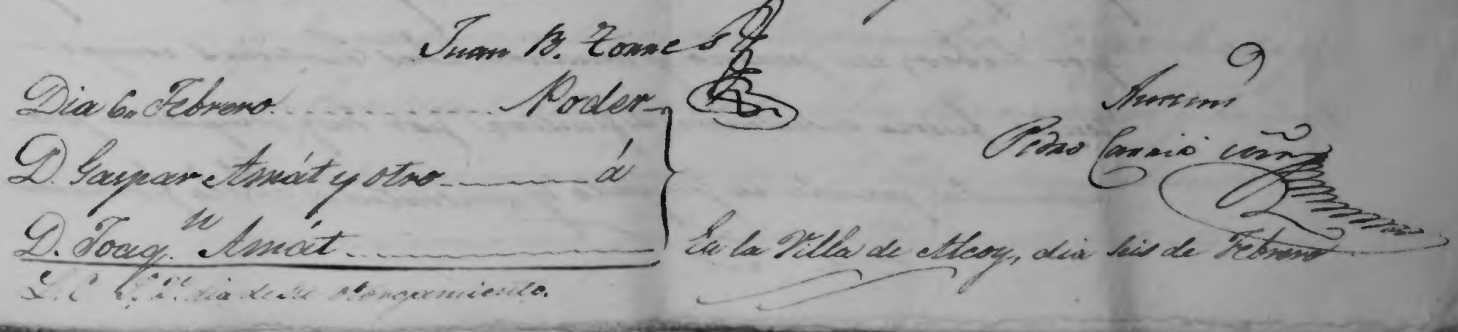 Juan B. Torres
Dia 6,, Febrero. Poder
D. Gaspar Amát y otro á
D. Joaq.n Amát
dia de su otorgamiento.
Antemi
Pedro Carrió
En la Villa de Alcoy, dia seis de Febrero